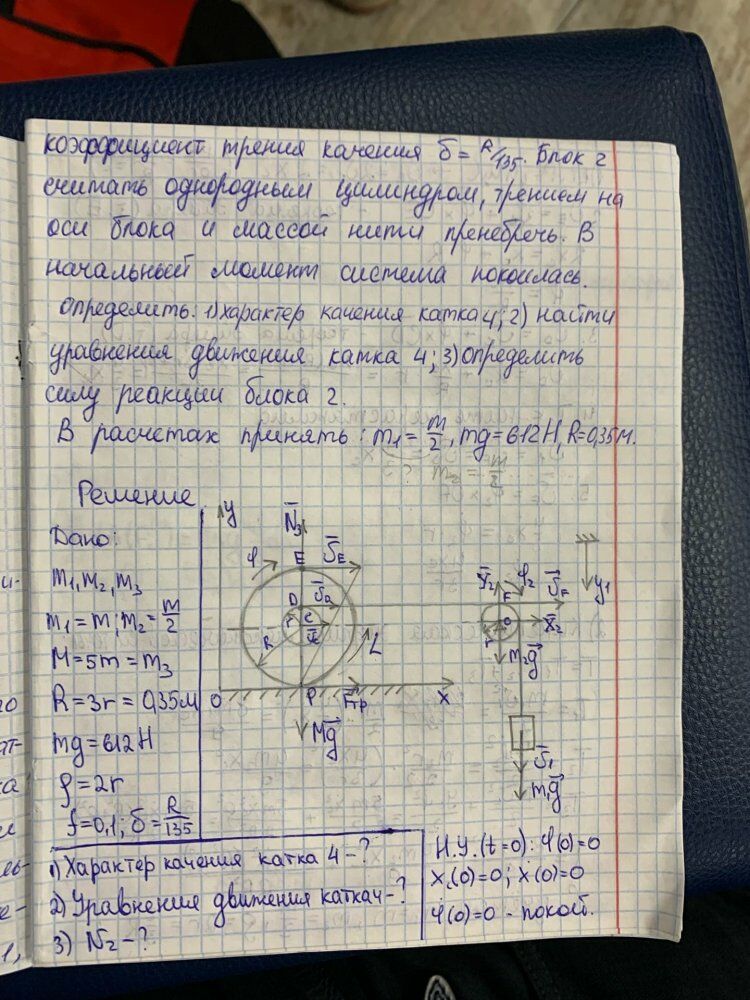 коэффициент трения качения δ = R/135. Блок 2
считать однородным цилиндром, трением на
оси блока и массой нити пренебречь. В
начальный момент система покоилась.
Определить: 1) характер качения катка 4; 2) найти
уравнения движения катка 4; 3) определить
силу реакции блока 2.
В расчетах принять: m₁ = m/2, mg = 612 Н, R = 0,35 м.
Решение
Дано:
m₁, m₂, m₃
m₁ = m; m₂ = m/2
M = 5m = m₃
R = 3r = 0,35 м
mg = 612 Н
ρ = 2r
f = 0,1; δ = R/135
y
N₃
φ
E
V_E
D
C
r
R
L
O
P
Fтр
x
Mg
y₂
φ₂
F
V_F
y₁
O
x₂
r
m₂g
V₁
m₁g
1) Характер качения катка 4 - ?
2) Уравнения движения катка 4 - ?
3) N₂ - ?
Н.У. (t = 0): φ(0) = 0
x(0) = 0; x(0) = 0
φ(0) = 0 - покой.